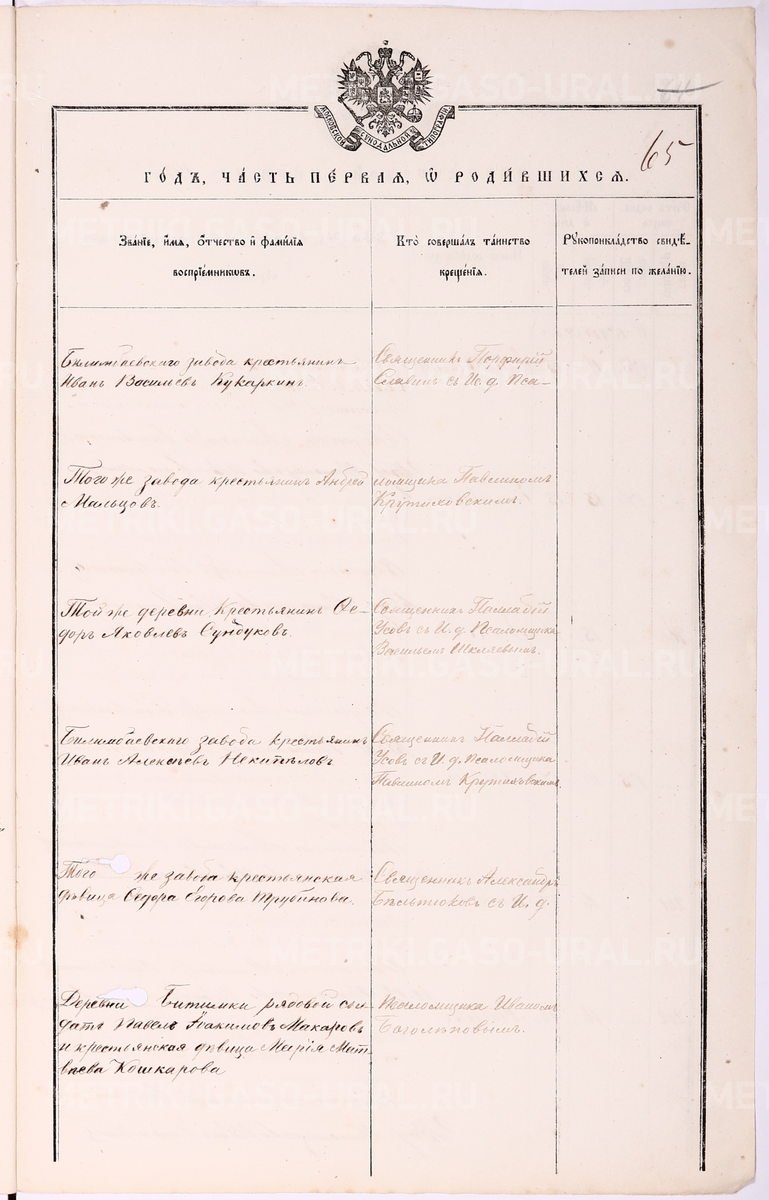 МОСКОВСКОЙ СѴНОДАЛЬНОЙ ТИПОГРАФІИ
65
ГО́ДЪ, ЧА́СТЬ ПЕ́РВАЯ, Ѡ҆ РОДИ́ВШИХСЯ.
Зва́ніе, и҆́мя, ѻ҆́тчество и҆ фами́лія
воспріе́мниковъ.
Кто̀ соверша́лъ та́инство
креще́нія.
Рꙋкоприкла́дство свидѣ́-
телей за́писи по жела́нію.
Билимбаевскаго завода крестьянинъ
Иванъ Васильевъ Кукаркинъ.
Священникъ Порфирій
Славинъ съ И. д. Пса-
Того же завода крестьянинъ Андрей
Мальцовъ.
ломщика Павлиномъ
Крутиковскимъ.
Той же деревни Крестьянинъ Ѳе-
доръ Яковлевъ Сундуковъ.
Священникъ Палладій
Усовъ съ И. д. Псаломщика
Васильемъ Шкляевымъ.
Билимбаевскаго завода крестьянинъ
Иванъ Алексѣевъ Некипѣловъ
Священникъ Палладій
Усовъ съ И. д. Псаломщика
Павлиномъ
Того же завода крестьянская
дѣвица Ѳедора Егорова Трубинова.
Священникъ Александръ
Бѣльтюковъ съ И. д.
Деревни Битимки рядовой сол-
датъ Павелъ Іоакимовъ Макаровъ
и крестьянская дѣвица Марія Мат-
вѣева Кошкарова
Псаломщика Иваномъ
Боголѣповымъ.
METRIKI.GASO-URAL.RU